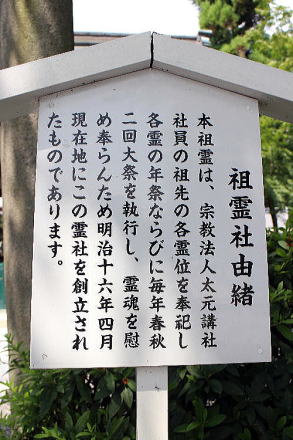 祖霊社由緒
本祖霊は、宗教法人太元講社
社員の祖先の各霊位を奉祀し
各霊の年祭ならびに毎年春秋
二回大祭を執行し、霊魂を慰
め奉らんため明治十六年四月
現在地にこの霊社を創立され
たものであります。